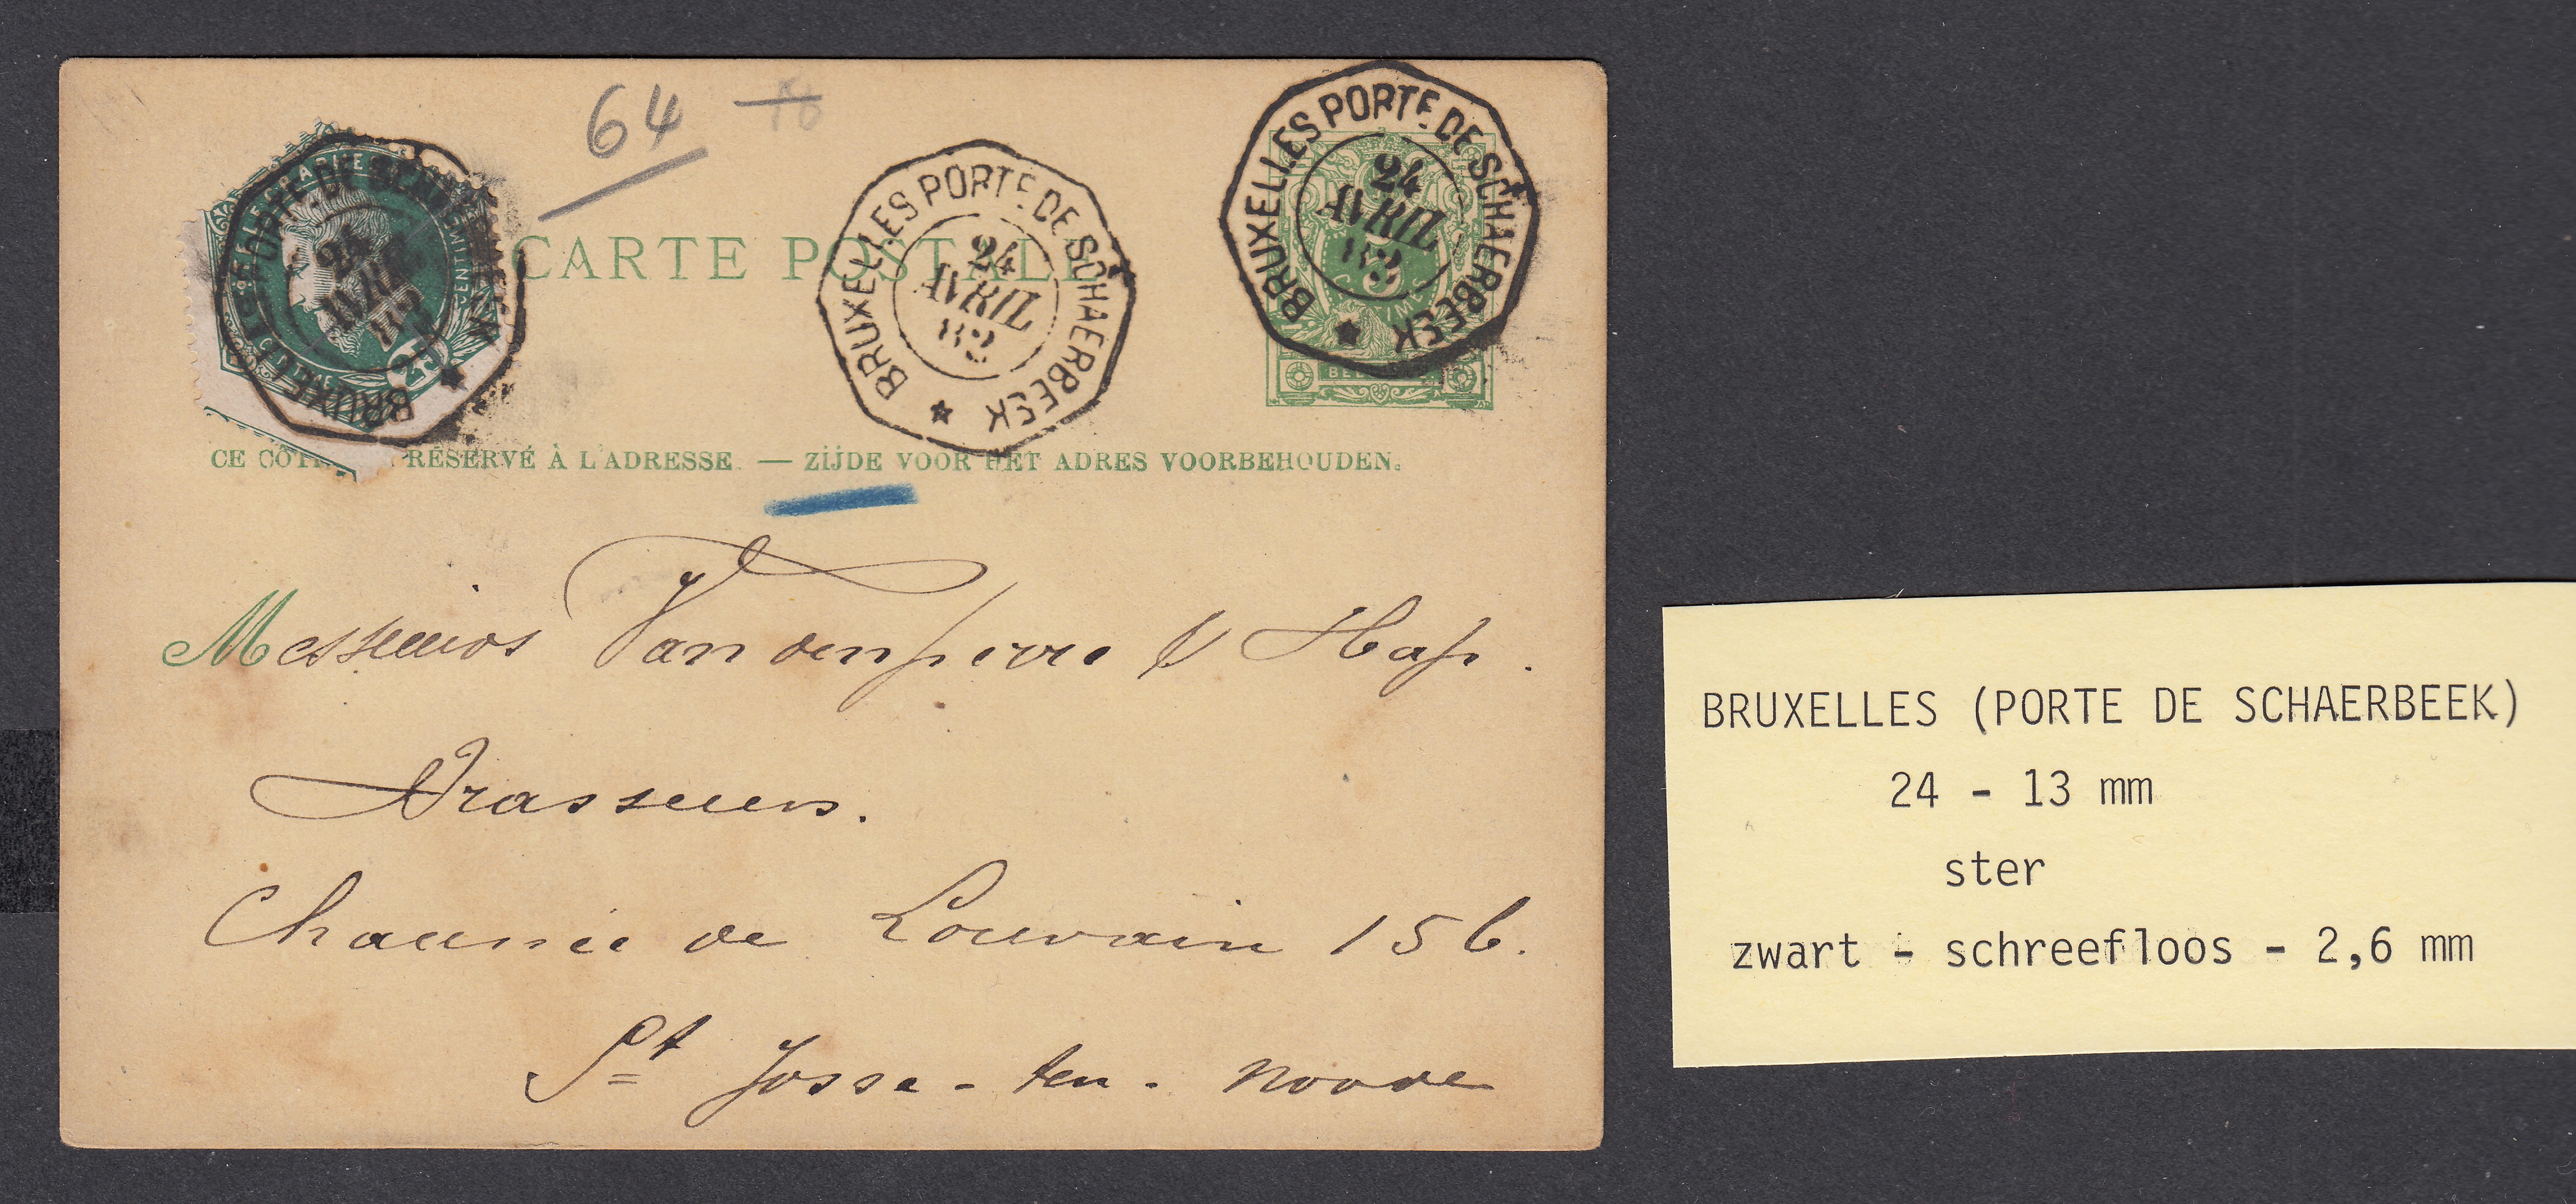 64
CARTE POSTALE
BRUXELLES PORTE DE SCHAERBEEK
24
AVRIL
BRUXELLES PORTE DE SCHAERBEEK
24
AVRIL
83
BRUXELLES PORTE DE SCHAERBEEK
24
AVRIL
83
25
CE CÔTÉ RÉSERVÉ À L'ADRESSE. — ZIJDE VOOR HET ADRES VOORBEHOUDEN.
Messieurs Vandenperre & Hap.
Brasseurs.
Chaussée de Louvain 156.
St Josse-ten-Noode
BRUXELLES (PORTE DE SCHAERBEEK)
24 - 13 mm
ster
zwart - schreefloos - 2,6 mm